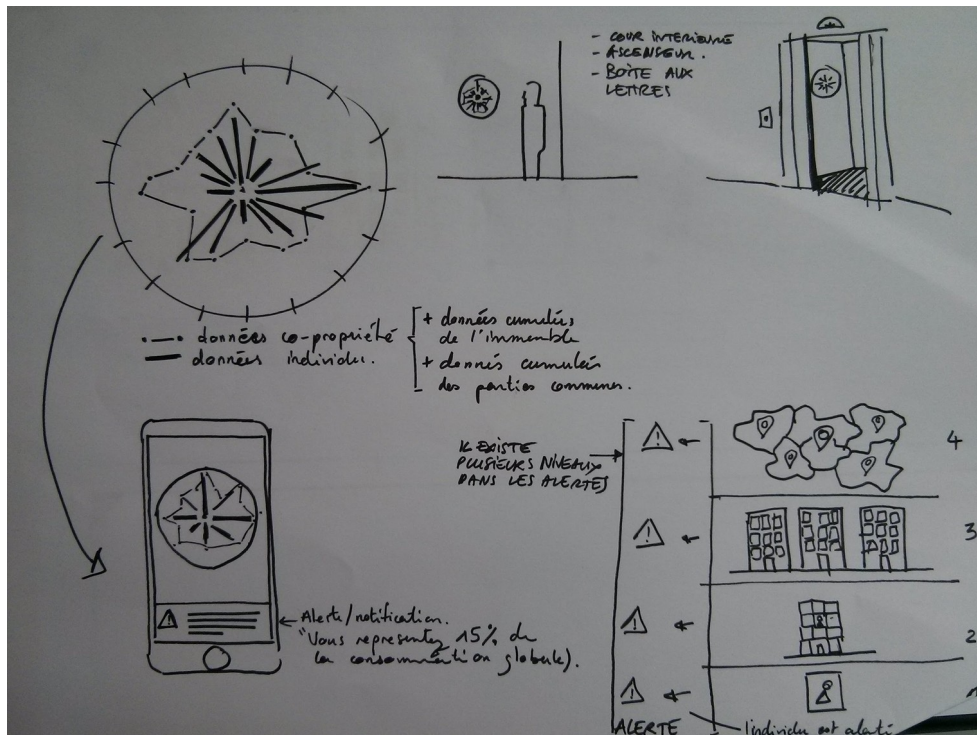 - COUR INTERIEURE
- ASCENSEUR.
- BOÎTE AUX
LETTRES
données co-propriété
données individu.
+ données cumulées
de l'immeuble
+ donnés cumulés
des parties communes.
IL EXISTE
PLUSIEURS NIVEAUX
DANS LES ALERTES
4
3
2
1
Alerte/notification.
"Vous representez 15% de
la consommation globale).
ALERTE
l'individu est alerté